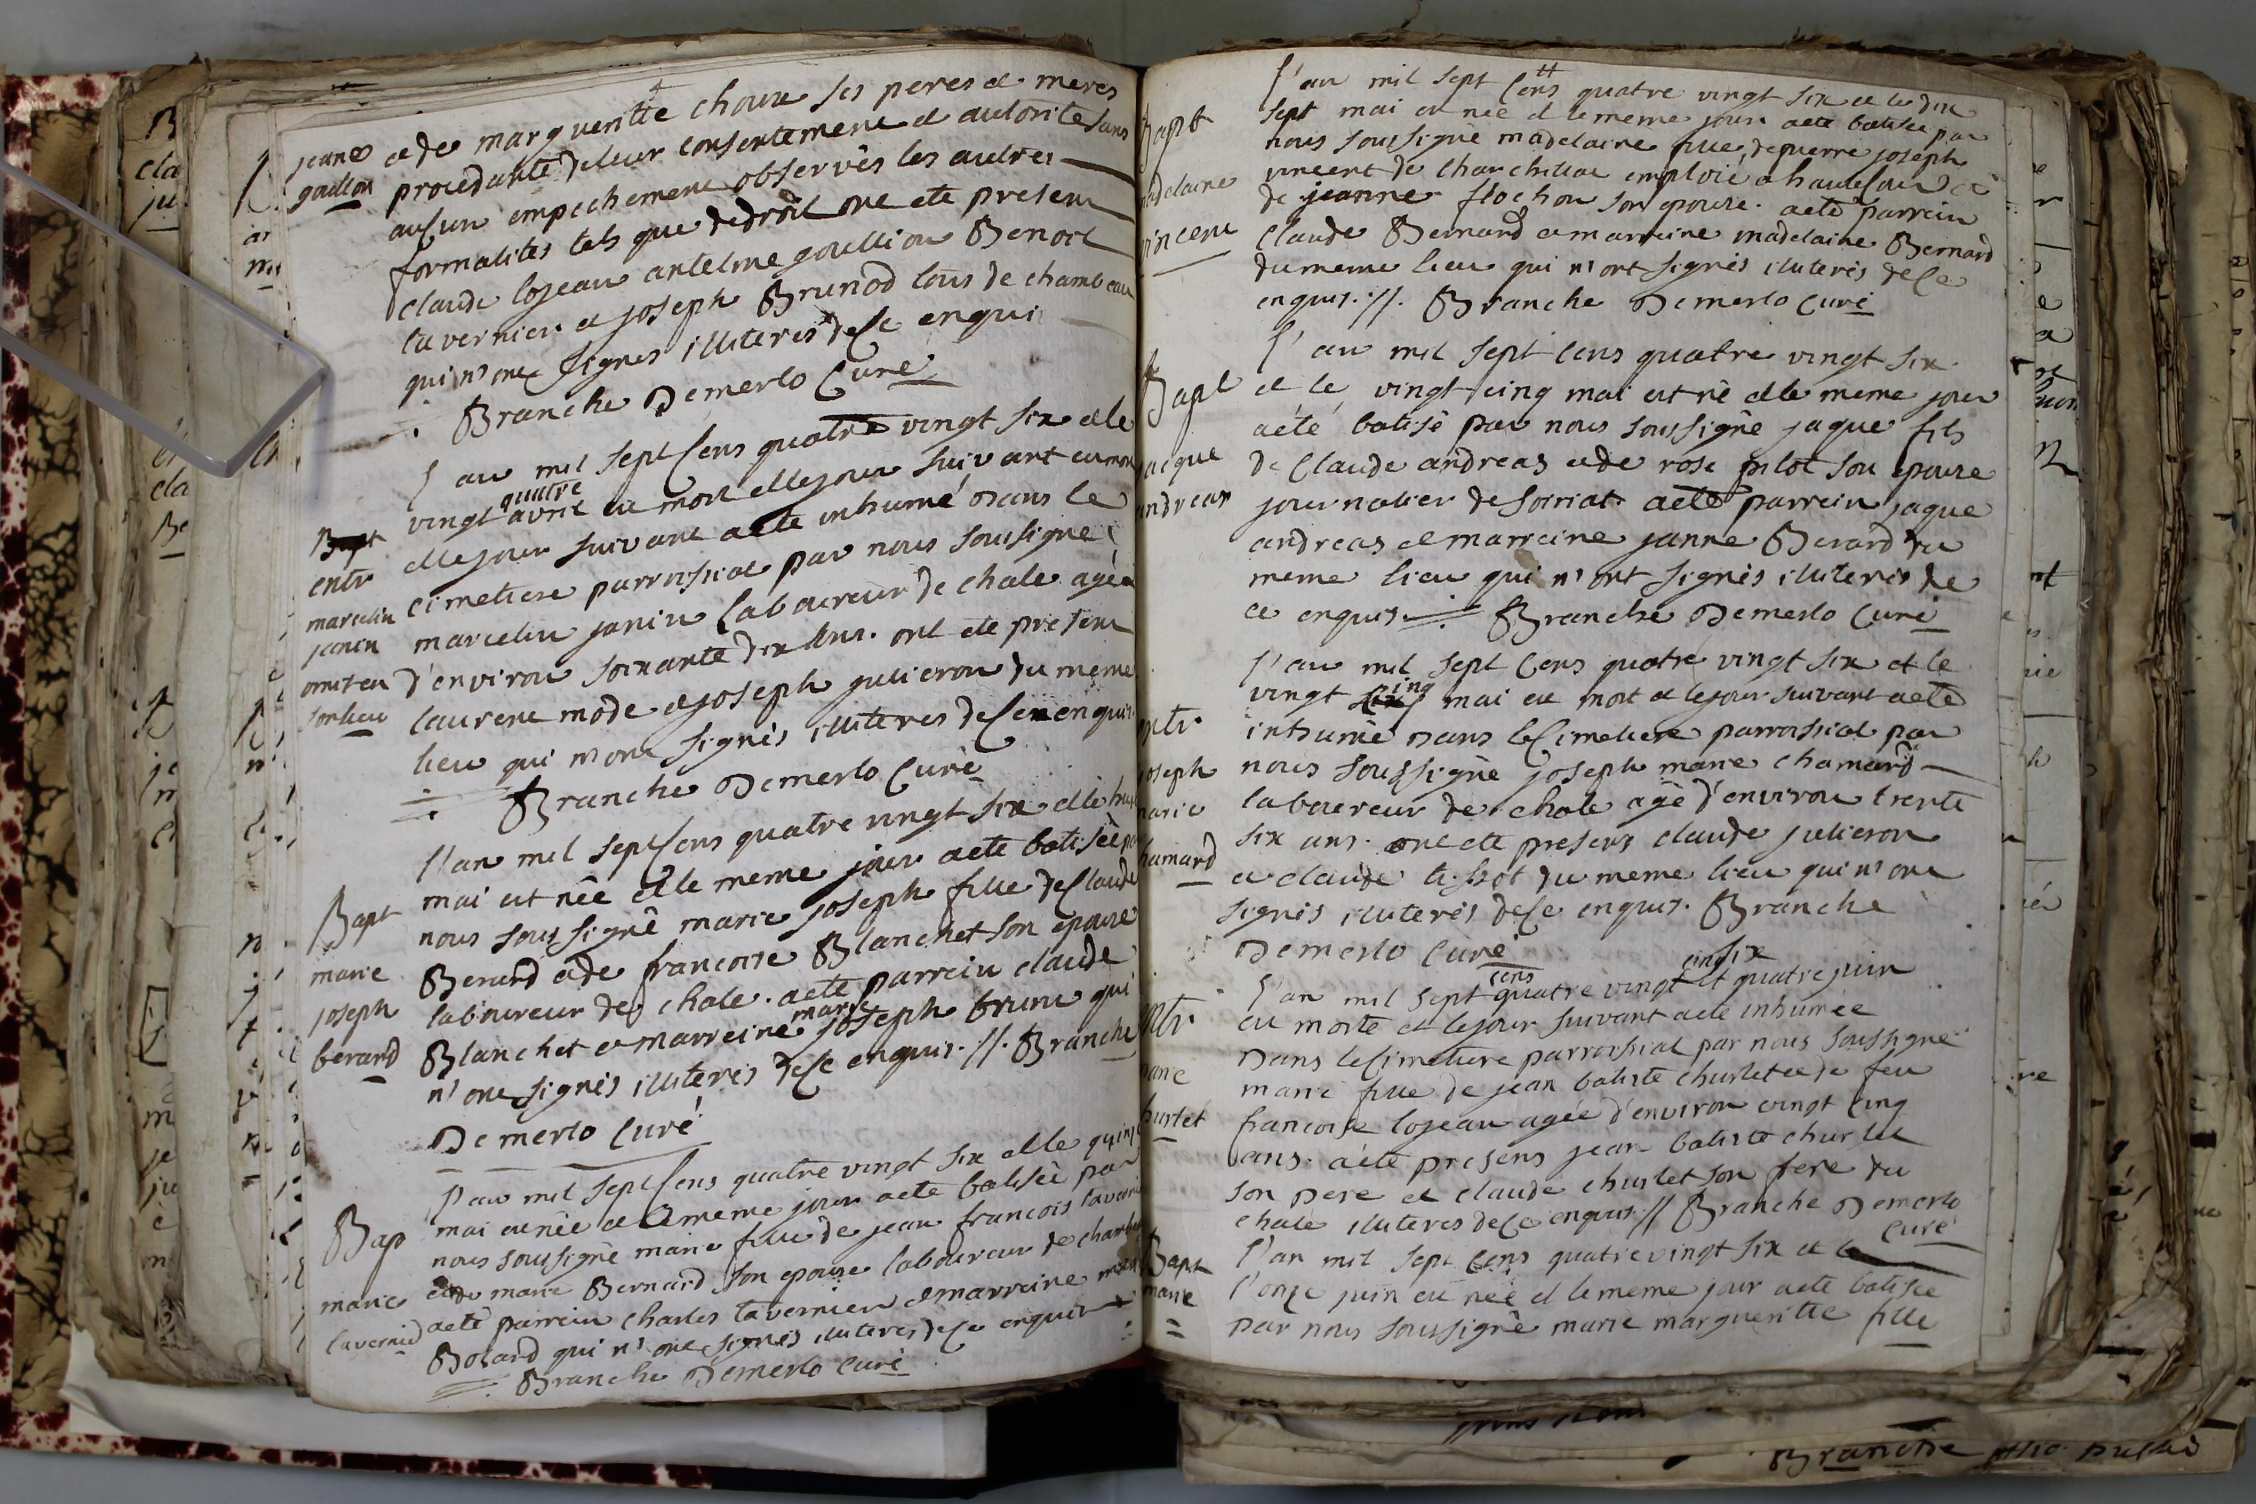 jeane
goullion
ade margueritte choux ses peres et meres
procedante de leur consentement et autorité sans
aucun empechement observés les autres
formalités tels que de droit ont eté present
claude lojeau antelme goullion Benoit
tavernier et joseph Brunod tous de chambeau
qui n'ont signés illiterés de ce enqui
Branche Demerlo Curé
l'an mil sept Cens quatre vingt six et le
vingt quatre avril est mort et le jour suivant
et le jour suivant a eté inhumé dans le
cimetiere parroissial par nous sousigné
marcelin janin laboureur de chale agé
d'environ soixante dix Ans. ont eté present
laurent mode et joseph julieron du meme
lieu qui n'ont signés illiteres de ce enquis
Branche Demerlo Curé
entr
marcelin
janin
omit en
son lieu
l'an mil sept Cens quatre vingt six et le huit
mai est née et le meme jour a eté batisée par
nous soussigné marie joseph fille de Claude
Berard et de francoise Blanchet son epouse
laboureur de chale. a eté parrein claude
Blanchet et marreine marie joseph brune qui
n'ont signés illiterés de ce enquis. //. Branche
Demerlo Curé
Bapt
marie
joseph
berard
l'an mil sept Cens quatre vingt six et le quinze
mai est née et le meme jour a eté batisée par
nous soussigné marie fille de jean francois tavernier
et de marie Bernard son epouse laboureur de chambeau
a eté parrein charles tavernier et marreine
Bolard qui n'ont signés illiteres de ce enquis
Branche Demerlo Curé
Bap
marie
tavernie
l'an mil sept Cens quatre vingt six et le dix
sept mai est née et le meme jour a eté batisée par
nous soussigné madelaine fille de pierre joseph
vincent de charchillat emploié a
de jeanne flochon son epouse. a eté parrein
Claude Bernard et marreine madelaine Bernard
du meme lieu qui n'ont signés illiterés de ce
enquis. //. Branche Demerlo Curé
Bapt
madelaine
vincent
l'an mil sept cens quatre vingt six
et le vingt cinq mai est né et le meme jour
a eté batisé par nous soussigné jaque fils
de Claude andreas et de rose pilot son epouse
journalier de soiriat. a eté parrein jaque
andreas et marreine janne Berard du
meme lieu qui n'ont signés illiterés de
ce enquis. Branche Demerlo Curé
Bapt
jacque
andreas
l'an mil sept Cens quatre vingt six et le
vingt cinq mai est mort et le jour suivant a eté
inhumé dans le Cimetiere parroissial par
nous soussigné joseph marie chamard
laboureur de chale agé d'environ trente
six ans. ont eté presens claude julieron
et claude tissot du meme lieu qui n'ont
signés illiterés de ce enquis. Branche
Demerlo Curé
entr.
joseph
marie
chamard
l'an mil sept cens quatre vingt six et quatre juin
est morte et le jour suivant a eté inhumée
Dans le Cimetiere parroissial par nous soussigné
marie fille de jean batiste churlet et de feu
francoise lojeau agée d'environ vingt cinq
ans. a eté presens jean batiste churlet
son pere et claude churlet son frere du
chale illiteres de ce enquis // Branche Demerlo
Curé
entr.
marie
churlet
l'an mil sept Cens quatre vingt six et le
l'onze juin est née et le meme jour a eté batisée
par nous soussigné marie margueritte fille
Bapt
marie